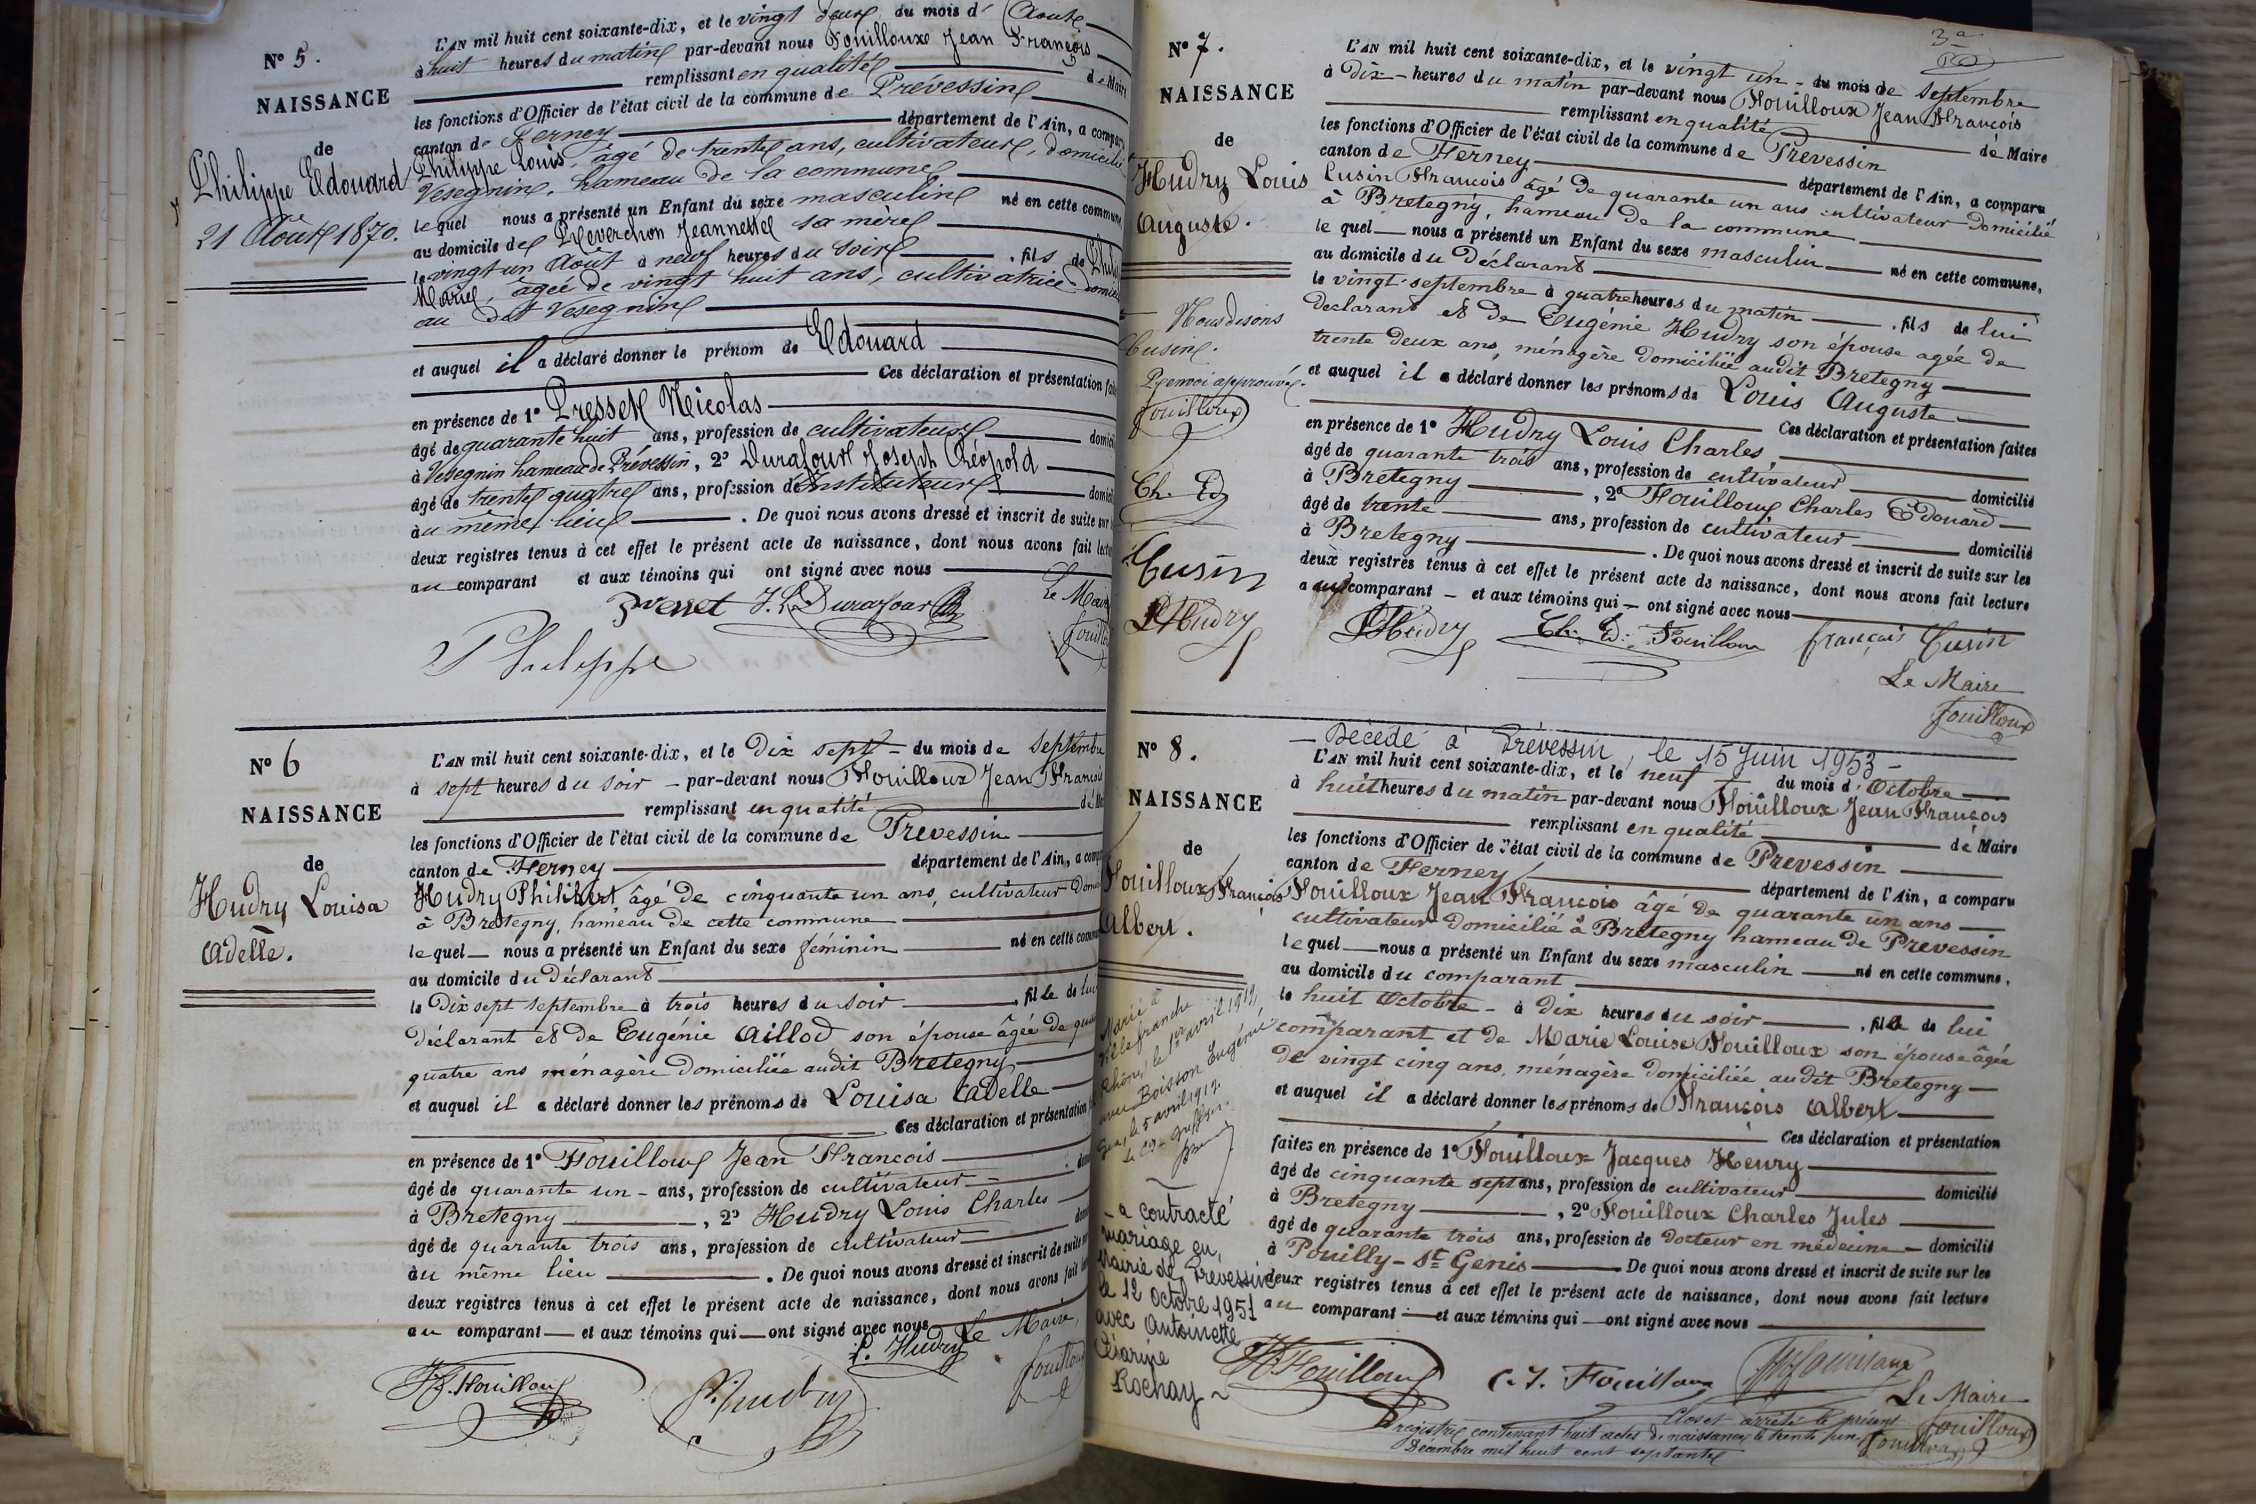 N° 5.
NAISSANCE
de
Philippe Edouard
21 Août 1870.
L'AN mil huit cent soixante-dix, et le vingt deux du mois d' Août
à huit heures du matin par-devant nous Fouilloux Jean François
remplissant en qualité de Maire
les fonctions d'Officier de l'état civil de la commune de Prévessin
canton de Ferney département de l'Ain, a comparu
Philippe Louis, âgé de trente ans, cultivateur, domicilié
Vesegnin, hameau de la commune
lequel nous a présenté un Enfant du sexe masculin né en cette commune
au domicile de Reverchon Jeannette sa mère
le vingt un Août à neuf heures du soir, fils de
Marie, âgée de vingt huit ans, cultivatrice
au dit Vesegnin
et auquel il a déclaré donner le prénom de Edouard
Ces déclaration et présentation
en présence de 1° Presset Nicolas
âgé de quarante huit ans, profession de cultivateur
à Vesegnin hameau de Prévessin, 2° Durafour Joseph Léopold
âgé de trente quatre ans, profession de Instituteur
au même lieu. De quoi nous avons dressé et inscrit de suite sur
deux registres tenus à cet effet le présent acte de naissance, dont nous avons fait
au comparant et aux témoins qui ont signé avec nous
J. L. Durafour Le Maire
Philippe
N° 6
NAISSANCE
de
Hudry Louisa
Adelle.
L'AN mil huit cent soixante-dix, et le dix sept du mois de septembre
à sept heures du soir par-devant nous Fouilloux Jean François
remplissant en qualité
les fonctions d'Officier de l'état civil de la commune de Prevessin
canton de Ferney département de l'Ain, a
Hudry Philibert âgé de cinquante un ans, cultivateur
à Bretegny, hameau de cette commune
lequel nous a présenté un Enfant du sexe féminin né en cette
au domicile du déclarant
le dix sept septembre à trois heures du soir, fille de lui
déclarant et de Eugénie Aillod son épouse âgée de
quatre ans ménagère domiciliée audit Bretegny
et auquel il a déclaré donner les prénoms de Louisa Adelle
Ces déclaration et présentation
en présence de 1° Fouilloux Jean François
âgé de quarante un ans, profession de cultivateur
à Bretegny, 2° Hudry Louis Charles
âgé de quarante trois ans, profession de cultivateur
au même lieu. De quoi nous avons dressé et inscrit de suite
deux registres tenus à cet effet le présent acte de naissance, dont nous avons fait
au comparant et aux témoins qui ont signé avec nous
L. Hudry Le Maire
J. F. Fouilloux
3ª
N° 7.
NAISSANCE
de
Hudry Louis
Auguste.
Nous disons
Cusin.
Renvoi approuvé.
Fouilloux
Ch. Ed
Cusin
L Hudry
L'AN mil huit cent soixante-dix, et le vingt un du mois de septembre
à dix heures du matin par-devant nous Fouilloux Jean François
remplissant en qualité de Maire
les fonctions d'Officier de l'état civil de la commune de Prevessin
canton de Ferney département de l'Ain, a comparu
Cusin François âgé de quarante un ans cultivateur domicilié
à Bretegny, hameau de la commune
lequel nous a présenté un Enfant du sexe masculin né en cette commune,
au domicile du déclarant
le vingt septembre à quatre heures du matin, fils de lui
déclarant et de Eugénie Hudry son épouse agée de
trente deux ans, ménagère domiciliée audit Bretegny
et auquel il a déclaré donner les prénoms de Louis Auguste
Ces déclaration et présentation faites
en présence de 1° Hudry Louis Charles
âgé de quarante trois ans, profession de cultivateur domicilié
à Bretegny, 2° Fouilloux Charles Edouard
âgé de trente ans, profession de cultivateur domicilié
à Bretegny. De quoi nous avons dressé et inscrit de suite sur les
deux registres tenus à cet effet le présent acte de naissance, dont nous avons fait lecture
au comparant et aux témoins qui ont signé avec nous
L Hudry Ch. Ed. Fouilloux françois Cusin
Le Maire
Fouilloux
N° 8.
NAISSANCE
de
Fouilloux François
Albert.
Marié à
Villefranche
Rhône, le 1er avril 1912
avec Boisson Eugénie
Gex, le 5 avril 1912.
a contracté
mariage en
Mairie de Prévessin
le 12 octobre 1951
avec Antoinette
Césarine
Rochay
Décédé à Prévessin le 15 Juin 1953
L'AN mil huit cent soixante-dix, et le neuf du mois d' Octobre
à huit heures du matin par-devant nous Fouilloux Jean François
remplissant en qualité de Maire
les fonctions d'Officier de l'état civil de la commune de Prevessin
canton de Ferney département de l'Ain, a comparu
Fouilloux Jean François âgé de quarante un ans
cultivateur domicilié à Bretegny hameau de Prevessin
lequel nous a présenté un Enfant du sexe masculin né en cette commune,
au domicile du comparant
le huit Octobre à dix heures du soir, fils de lui
comparant et de Marie Louise Fouilloux son épouse âgée
de vingt cinq ans, ménagère domiciliée audit Bretegny
et auquel il a déclaré donner les prénoms de François Albert
Ces déclaration et présentation
faites en présence de 1° Fouilloux Jacques Henry
âgé de cinquante sept ans, profession de cultivateur domicilié
à Bretegny, 2° Fouilloux Charles Jules
âgé de quarante trois ans, profession de docteur en médecine domicilié
à Pouilly-St Genis. De quoi nous avons dressé et inscrit de suite sur les
deux registres tenus à cet effet le présent acte de naissance, dont nous avons fait lecture
au comparant et aux témoins qui ont signé avec nous
Fouilloux C. J. Fouilloux
Le Maire
Fouilloux
Clos et arrêté le présent
registre contenant huit actes de naissances le trente un
Décembre mil huit cent septante
Fouilloux